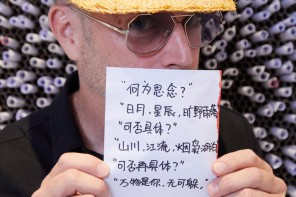 "何为思念？"
"日月，星辰，旷野雨落
"可否具体？"
"山川，江流，烟袅湖泊
"可否再具体？"
"万物是你，无可躲。"